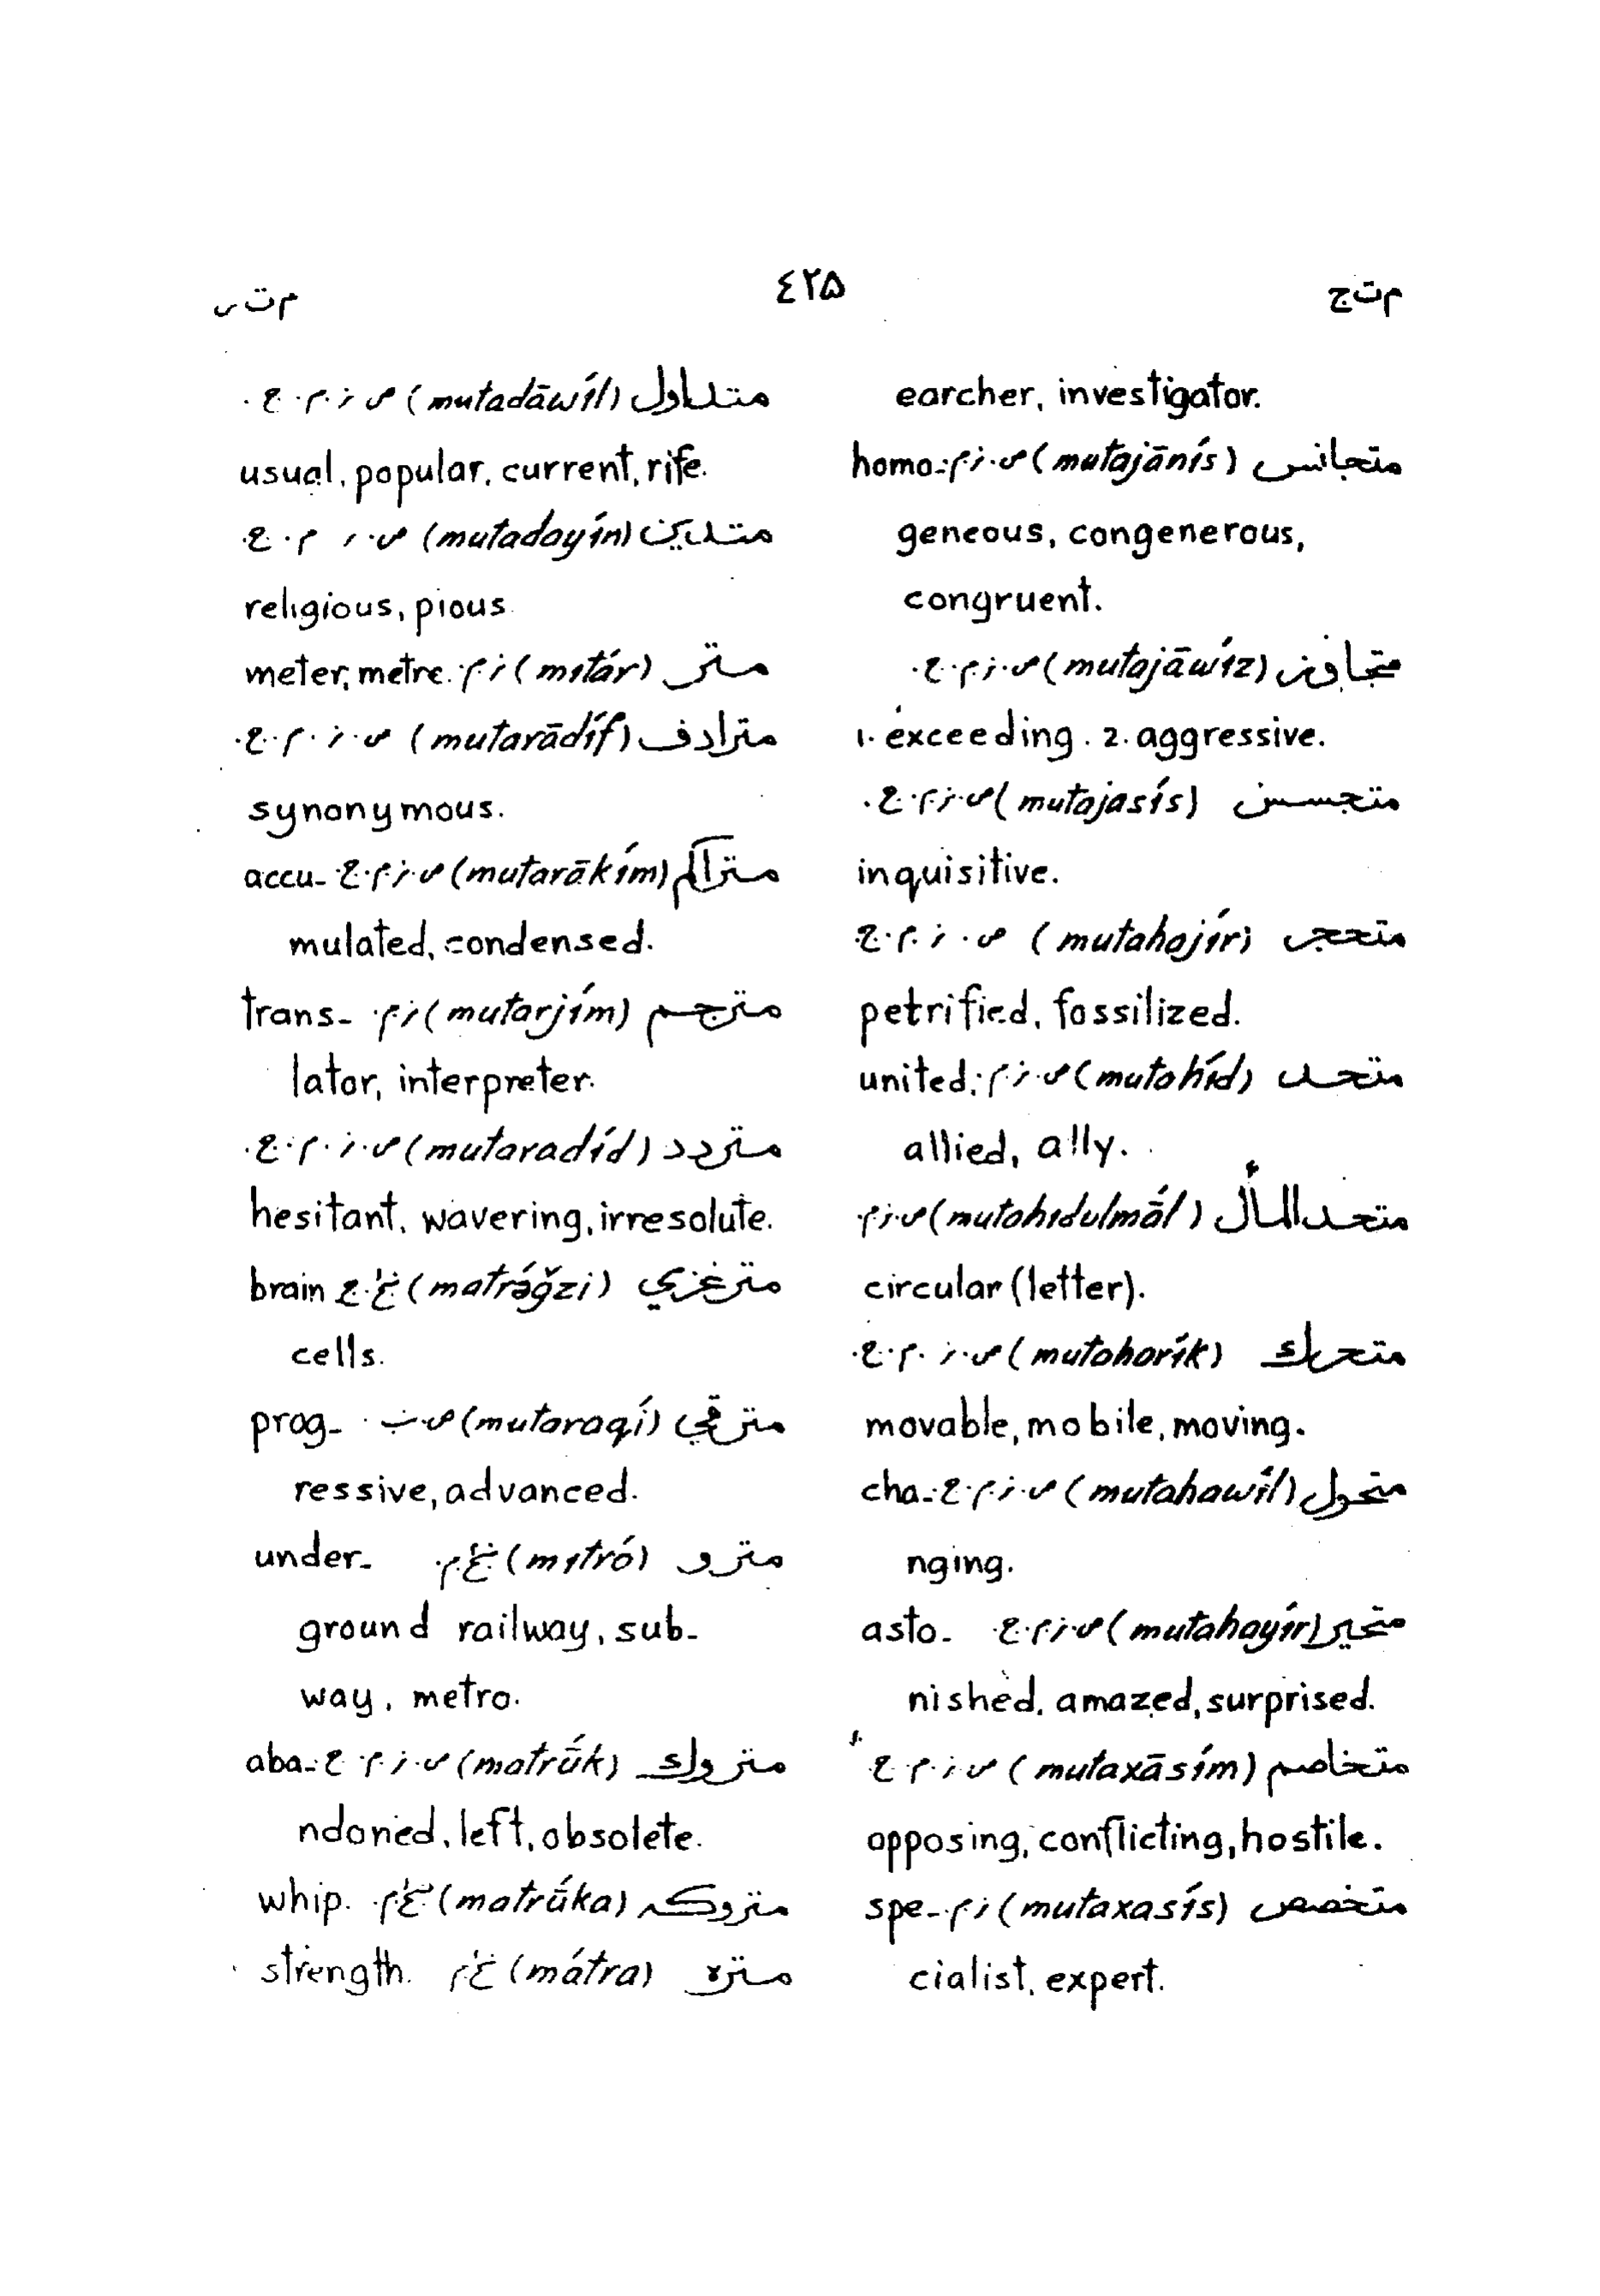 م ت ج
٤٢٥
م ت ر
earcher, investigator.
متجانس (mutajānís) ص.ز.م. homo-
geneous, congenerous,
congruent.
متجاوز (mutajāwíz) ص.ز.م.ج.
1. exceeding. 2. aggressive.
متجسس (mutajasís) ص.ز.م.ج.
inquisitive.
متحجر (mutahajír) ص.ز.م.ج.
petrified, fossilized.
متحد (mutahíd) ص.ز.م. united;
allied, ally.
متحدالمأل (mutahidulmā́l) ص.ز.م.
circular (letter).
متحرك (mutaharík) ص.ز.م.ج.
movable, mobile, moving.
متحول (mutahawíl) ص.ز.م.ج. cha-
nging.
متحير (mutahayír) ص.ز.م.ج. asto-
nished, amazed, surprised.
متخاصم (mutaxāsím) ص.ز.م.ج.
opposing, conflicting, hostile.
متخصص (mutaxasís) ز.م. spe-
cialist, expert.
متداول (mutadāwíl) ص.ز.م.ج.
usual, popular, current, rife.
متدين (mutadayín) ص.ز.م.ج.
religious, pious
متر (mitár) ز.م. meter, metre.
مترادف (mutarādíf) ص.ز.م.ج.
synonymous.
متراكم (mutarākím) ص.ز.م.ج. accu-
mulated, condensed.
مترجم (mutarjím) ز.م. trans-
lator, interpreter.
متردد (mutaradíd) ص.ز.م.ج.
hesitant, wavering, irresolute.
مترغزي (matráǧzi) ج. brain
cells.
مترقي (mutaraqí) ص.ب. prog-
ressive, advanced.
مترو (mitró) under-
ground railway, sub-
way, metro.
متروك (matrū́k) ص.ز.م.ج. aba-
ndoned, left, obsolete.
متروكه (matrū́ka) whip.
متره (mátra) strength.